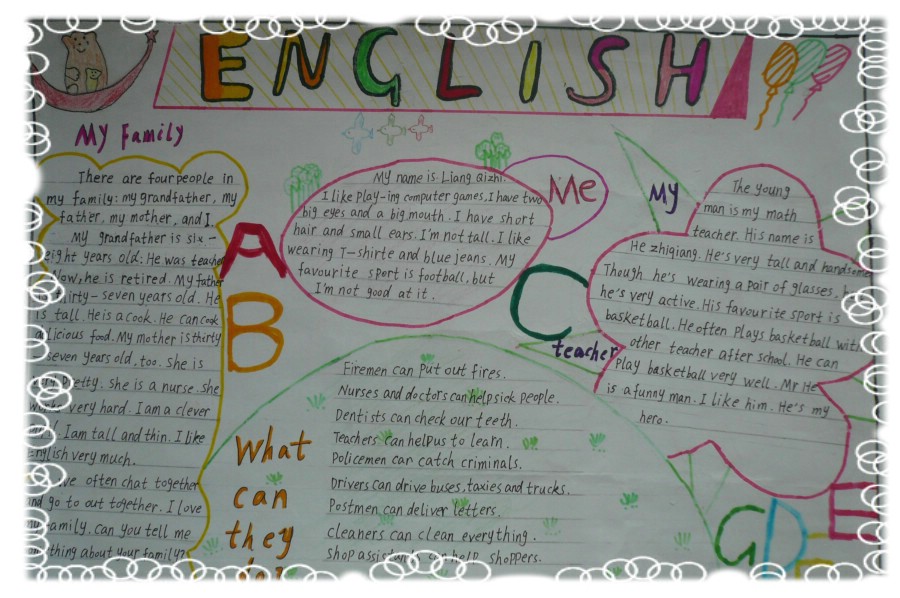 ENGLISH
My Family
There are four people in
my family: my grandfather, my
father, my mother, and I.
My grandfather is six-
eight years old. He was teacher
Now, he is retired. My father
thirty-seven years old. He
is tall. He is a cook. He can cook
licious food. My mother is thirty
seven years old, too. She is
very pretty. she is a nurse. she
very hard. I am a clever
I am tall and thin. I like
English very much.
We often chat together
and go to out together. I love
my family. Can you tell me
thing about your family?
A
B
My name is Liang qizhi.
I like play-ing computer games, I have two
big eyes and a big mouth. I have short
hair and small ears. I'm not tall. I like
wearing T-shirte and blue jeans. My
favourite sport is football, but
I'm not good at it.
Me
C
My
teacher
The young
man is my math
teacher. His name is
He zhiqiang. He's very tall and handsome
Though he's wearing a pair of glasses,
he's very active. His favourite sport is
basketball. He often plays basketball with
other teacher after school. He can
play basketball very well. Mr He
is a funny man. I like him. He's my
hero.
What
can
they
do?
Firemen can put out fires.
Nurses and doctors can help sick people.
Dentists can check our teeth.
Teachers can help us to learn.
Policemen can catch criminals.
Drivers can drive buses, taxies and trucks.
Postmen can deliver letters.
cleaners can clean everything.
shop assistants can help shoppers.
G
D
E